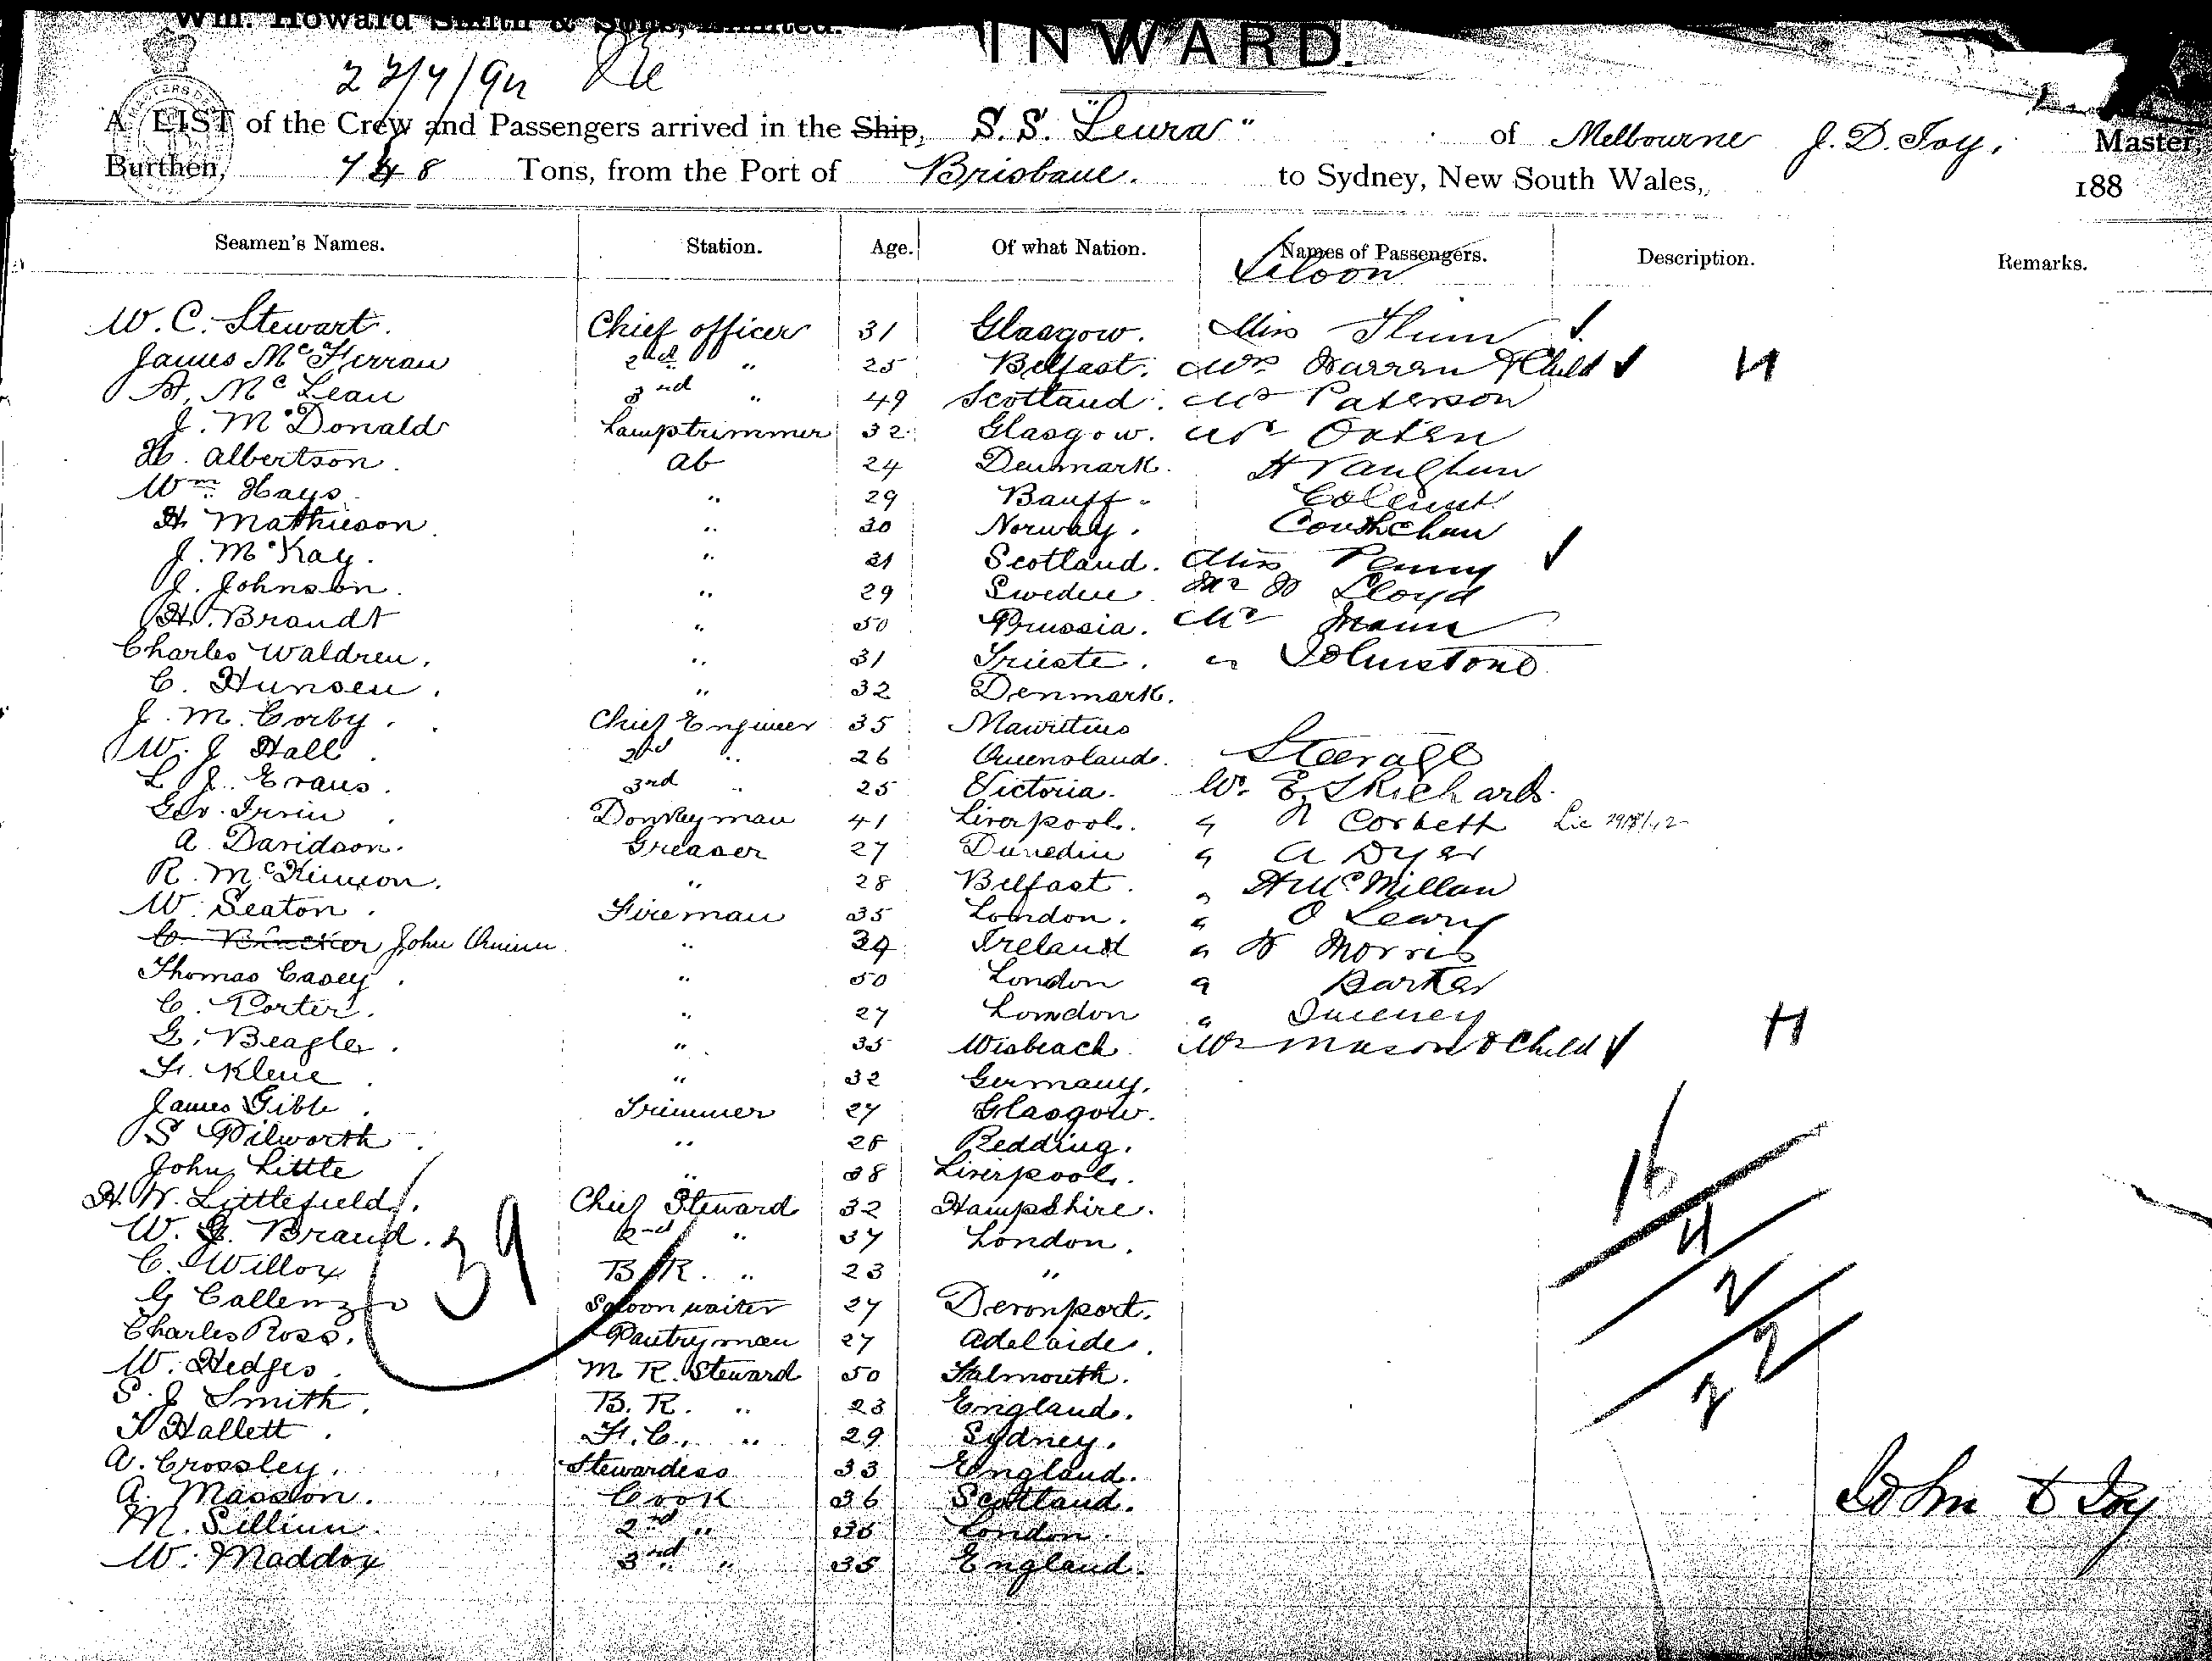 Wm. Howard Smith & Sons, Limited.
INWARD.
A LIST of the Crew and Passengers arrived in the Ship, S.S. "Leura" of Melbourne J. D. Joy, Master,
Burthen, 748 Tons, from the Port of Brisbane. to Sydney, New South Wales, 188
Seamen's Names. Station. Age. Of what Nation. Names of Passengers. Description. Remarks.
Saloon
W. C. Stewart. Chief officer 31 Glasgow. Miss Flinn
James McFerran 2nd " 25 Belfast. Mrs Warren & Child H
A. Mc Lean 3rd " 49 Scotland. Mr Paterson
J. McDonald Lamptrimmer 32 Glasgow. Mr Oxten
H. Albertson. ab 24 Denmark. H Vaughan
Wm Hays. " 29 Banff.
H. Mathieson " 30 Norway.
J. McKay. " 21 Scotland. Miss Penny
J. Johnson. " 29 Sweden. Mr Lloyd
H. Brandt " 50 Prussia. Mr Mann
Charles Waldren. " 31 Trieste. " Johnstone
C. Hunsen. " 32 Denmark.
J. M. Corby. Chief Engineer 35 Mauritius
W. J Hall 2nd " 26 Queensland. Steerage
L J. Evans. 3rd " 25 Victoria. Mr E. Richards
Geo. Irvin Donkeyman 41 Liverpool. " Corbett
A Davidson. Greaser 27 Dunedin " A Dyer
R. McKinnon. " 28 Belfast. " H McMillan
W. Seaton. Fireman 35 London. " O Leary
John Quinn " 34 Ireland " Morris
Thomas Casey " 50 London " Barker
C. Porter. " 27 London " Sweeney
G. Beagler. " 35 Wisbeach Mrs Mason & Child H
Fr. Klene " 32 Germany.
James Gibb Trimmer 27 Glasgow.
S Pilworth " 28 Redding.
John Little " 38 Liverpool.
H. W. Littlefield. Chief Steward 32 Hampshire.
W. G. Brand. 2nd " 37 London.
39
C. Willox B R. " 23 "
G Callenzo Saloon waiter 27 Devonport.
Charles Ross. Pantryman 27 Adelaide.
W. Hedges M R. Steward 50 Falmouth.
S. J Smith. B. R. " 23 England.
Hallett F. C. " 29 Sydney.
A. Crossley. Stewardess 33 England.
A. Masson. Cook 36 Scotland.
M. Sillinn. 2nd " 36 London.
W. Maddox 3rd " 35 England.
16
4
2
2
2
John D Joy